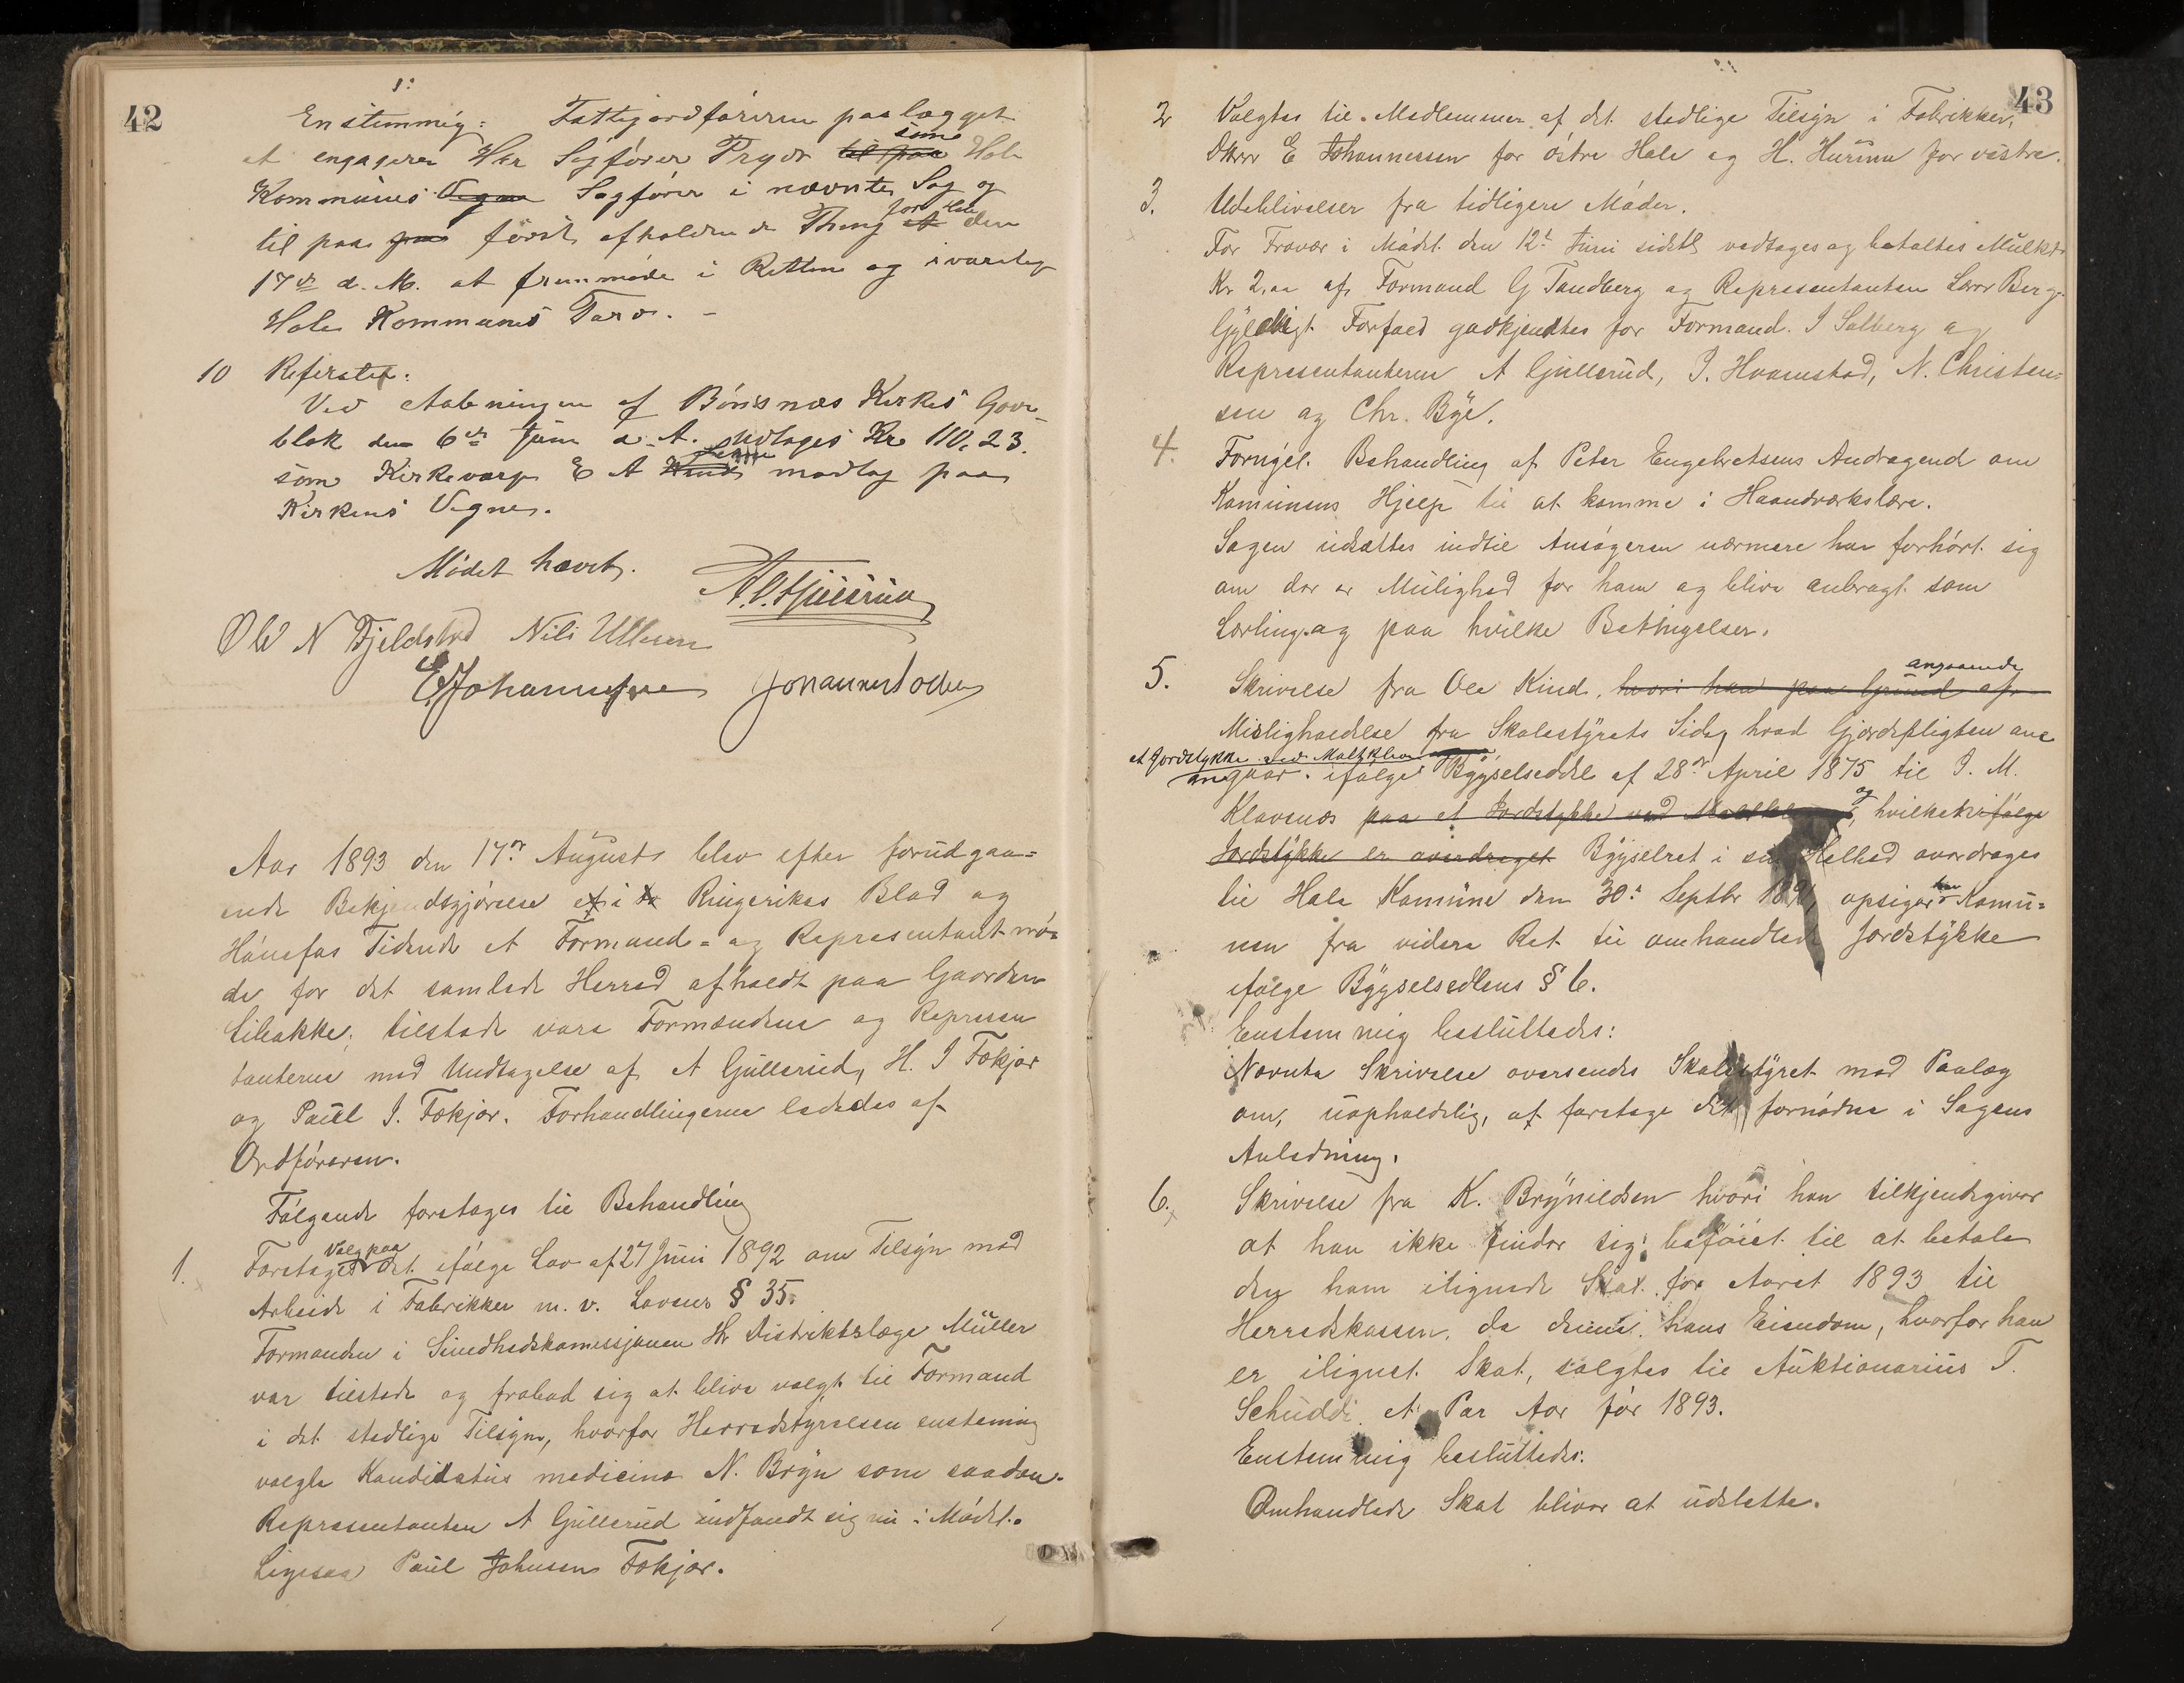 42
1:
Enstemmig: Fattigordføreren paalægget
at engagere Herr Sagfører Prydz til paa som Hole
Kommunes Vegne Sagfører i nævnte Sag og
til paa paa først afholdende Thing at for Hole den
17de d. M. at fremmøde i Retten og ivaretage
Hole Kommunes Tarv. -
10 Refererates:
Ved Aabningen af Bønsnæs Kirkes Gave-
blok den 6te Juni d. A. udtoges Kr. 110,23.
som Kirkeværge E A modtog paa
Kirkens Vegne.
Mødet hævet.
Ole N Fjeldstad Nils Ullern
E. Johannessen Johannes
Aar 1893 den 17de Augusts blev efter forudgaa=
ende Bekjendtgjørelse i Ringerikes Blad og
Hønefos Tidende et Formand= og Representantmø=
de for det samlede Herred afholdt paa Gaarden
Libakke; tilstede vare Formændene og Represen
tanterne med Undtagelse af A Gullerud, H. J Fekjær
og Paul J. Fekjær. Forhandlingerne lededes af
Ordføreren.
Følgende foretages til Behandling
1. Foretages Valg paa det ifølge Lov af 27 Juni 1892 om Tilsyn med
Arbeide i Fabrikker m. v. Lovens § 35.
Formanden i Sundhedskomissjonen Hr Distriktslæge Müller
var tilstede og frabad sig at blive valgt til Formand
i det stedlige Tilsyn, hvorfor Herredstyrelsen enstemig
valgte Kandidatus medicine N. Bryn som saadan.
Representanten A Gullerud indfandt sig nu i Mødet.
Ligesaa Paul Johnsen Fekjær.
43
2 Valgtes til Medlemmer af det stedlige Tilsyn i Fabrikker,
Dhrr E Johannessen for østre Hole og H. Hurum for vestre.
3. Udeblivelser fra tidligere Møder.
For Fravær i Mødet den 12te Juni sidstl vedtages og betaltes Mulkt
Kr 2,00 af Formand G Tandberg og Representanten Lars Berg.
Gyldigt Forfald godkjendtes for Formand J Solberg og
Representanterne A Gullerud, J. Hvamstad, N. Christen=
sen og Chr. Bye.
4. Fornyet Behandling af Peter Engebretsens Andragend om
Komunens Hjelp til at komme i Haandverkslære.
Sagen udsættes indtil Ansøgeren nærmere har forhørt sig
om der er Mulighed for ham og blive anbragt som
Lærling og paa hvilke Betingelser.
5. Skrivelse fra Ole Kind, hvori han paa Grund af angaaende
Misligholdelse fra Skolestyrets Side, hvad Gjerdepligten an=
et Jordstykke ved Maltklev
angaar ifølge Bygselseddel af 28de April 1875 til J. M.
Klovenæs paa et Jordstykke ved og, hvilket ifølge
Jordstykke er overdraget Bygselret i sin Helhed overdrages
til Hole Komune den 30te Septbr opsiger han Komu=
nen fra videre Ret til omhandlede Jordstykke
ifølge Bygselsedlens § 6.
Enstemmig besluttedes:
Nævnte Skrivelse oversendes Skolestyret med Paalæg
om, uopholdelig, at foretage det fornødne i Sagens
Anledning.
6. Skrivelse fra K. Brynildsen hvori han tilkjendegiver
at han ikke finder sig beføiet til at betale
den ham ilignede Skat for Aaret 1893 til
Herredskassen, da denne hans Eiendom, hvorfor han
er ilignet Skat, solgtes til Auktionarius T.
Schuddi et Par Aar før 1893.
Enstemmig besluttedes:
Omhandlede Skat bliver at udslette.